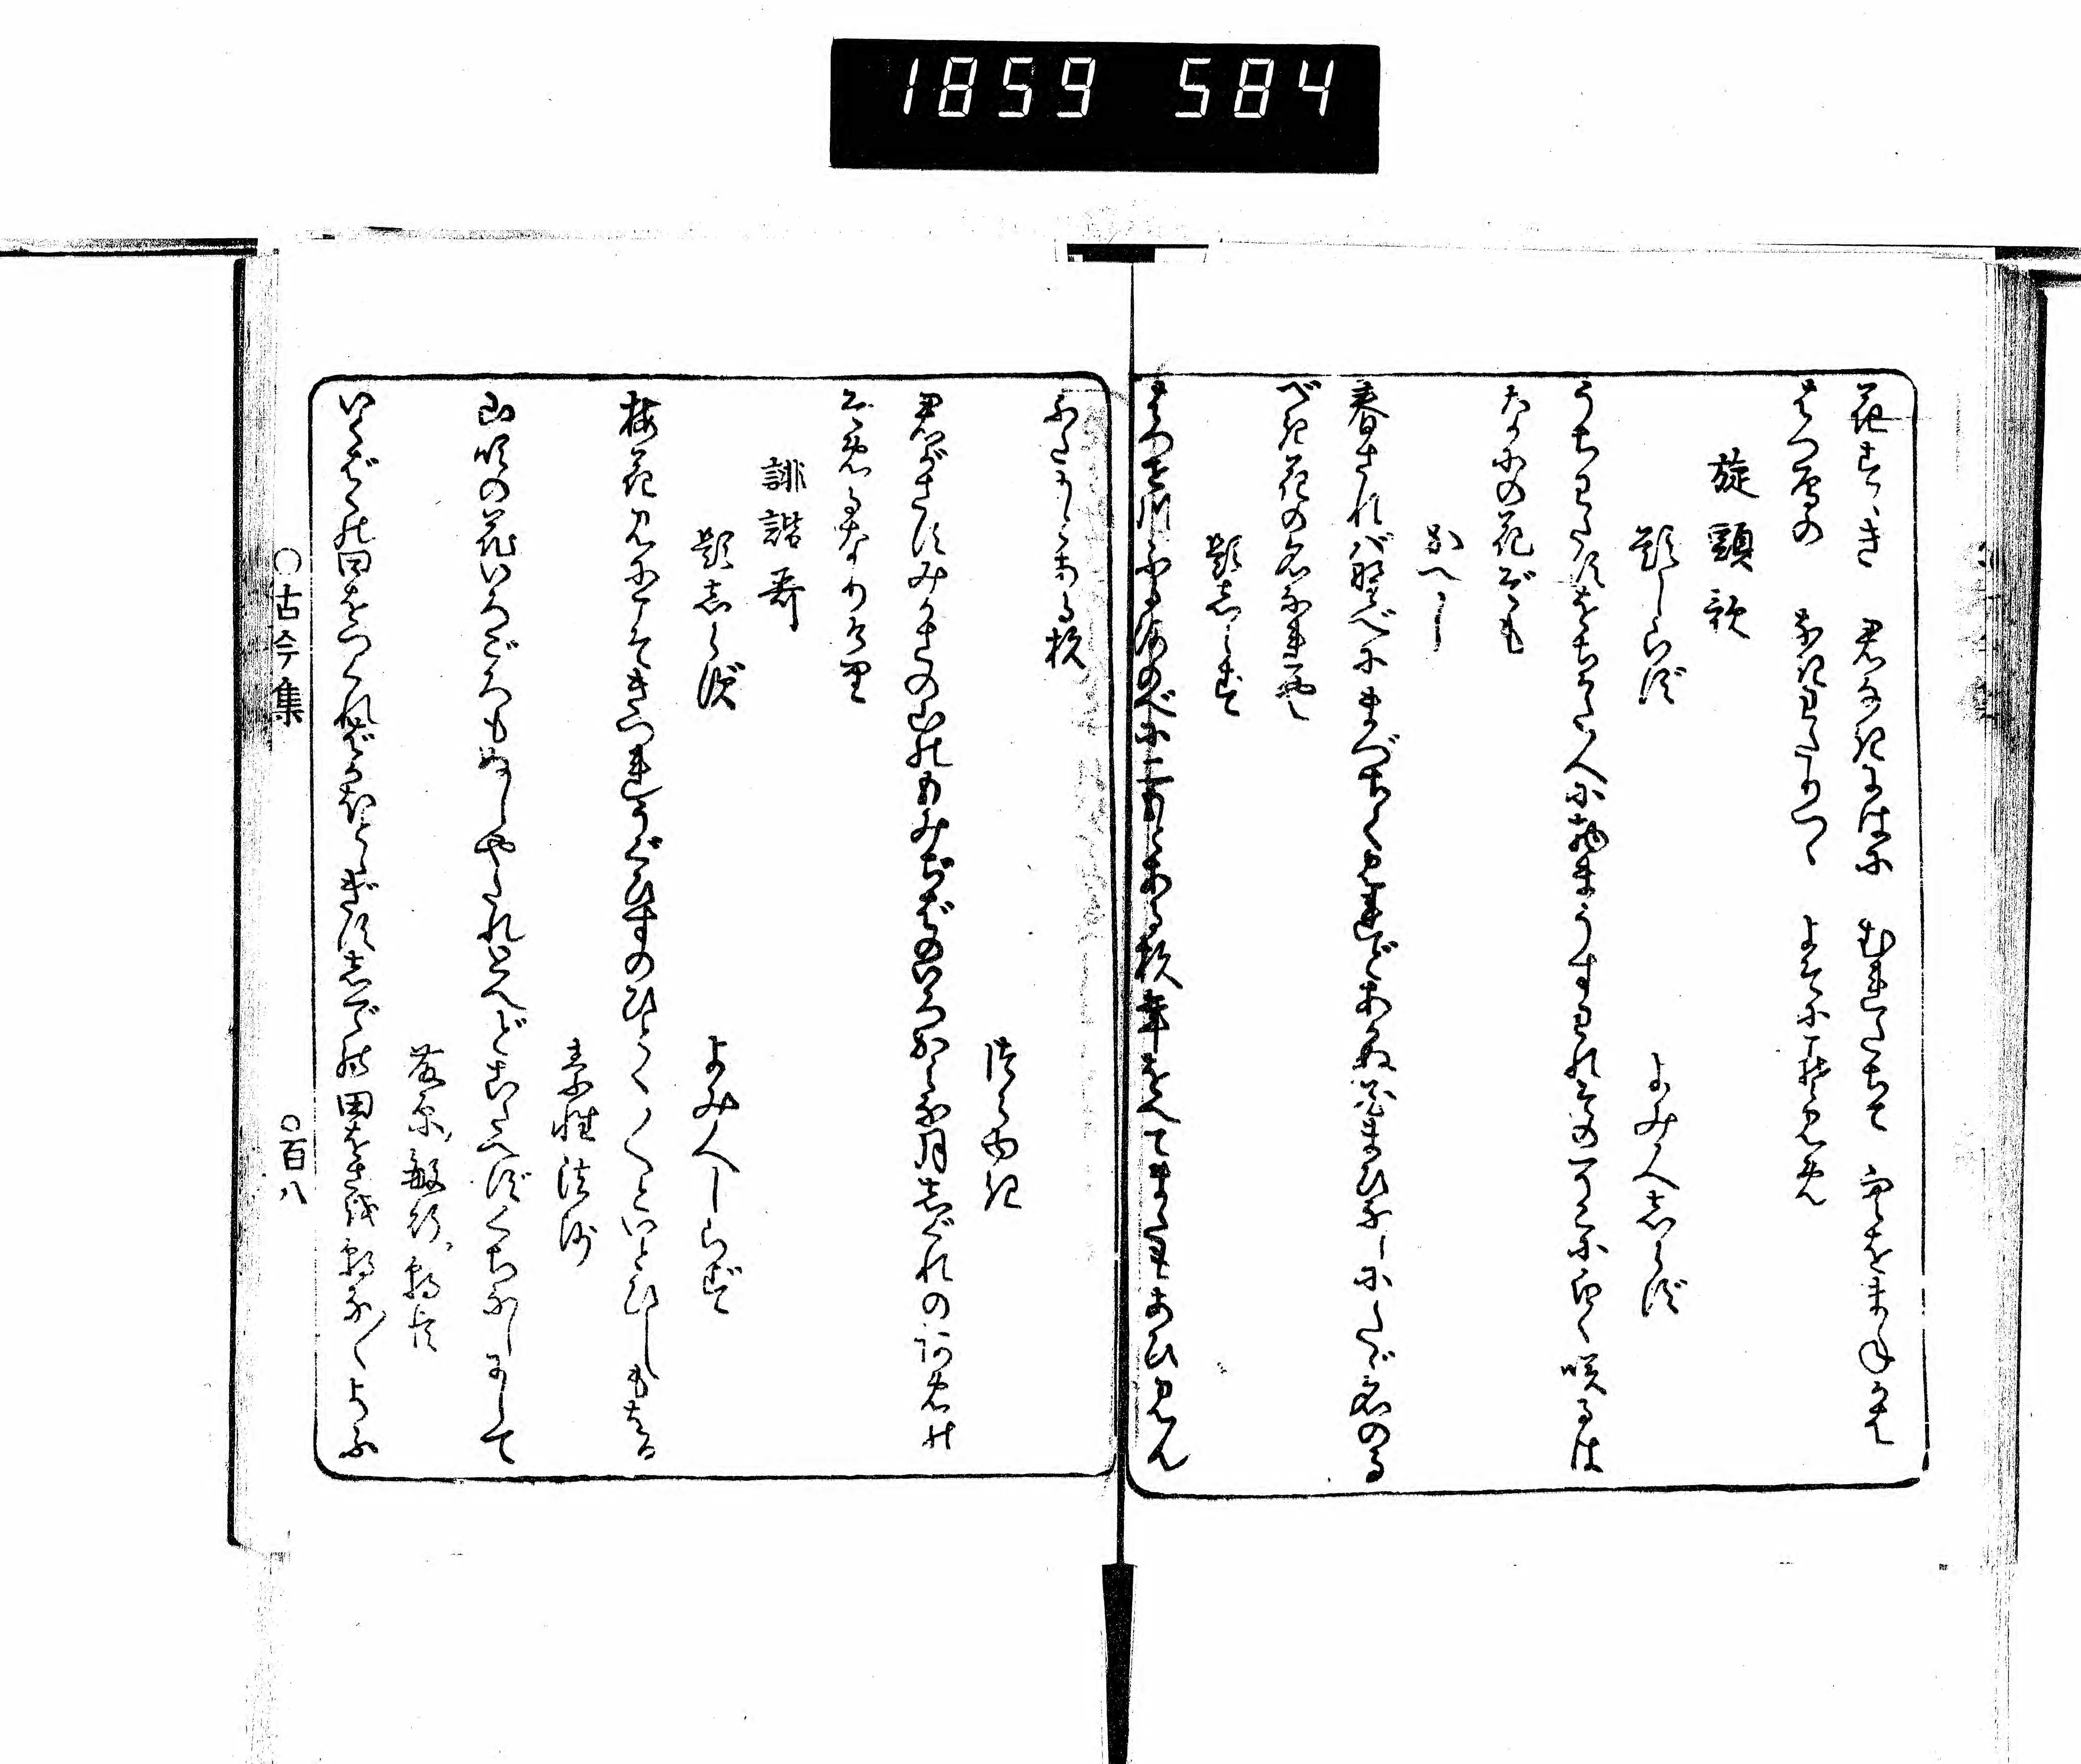 1859 584
花すゝき 君なき庭に むれたちて 空をまねかば
はつ雁の なきわたりつゝ よそにこそ見め
旋頭歌
題しらず
よみ人しらず
うちわたすをちかた人に物まうすわれそのそこにしろく咲るは
なにの花ぞも
かへし
春されば野べにまづさく見れどあかぬ花まひなしにたゞ名のる
べき花の名なれや
題しらず
はつせ川ふる河のべに二もとある杉年をへてまたもあひ見ん
ふたもとある杉
つらゆき
君がさすみかさの山のもみぢばのいろかみな月しぐれの雨の
そめるなりけり
誹諧哥
題しらず
よみ人しらず
梅花見にこそきつれうぐひすのひとく〳〵といとひしもをる
素性法師
山吹の花いろごろもぬしやたれとへどこたへずくちなしにして
藤原敏行朝臣
いくばくの田をつくればかほとゝぎすしでの田をさを朝な〳〵よぶ
○古今集
○百八